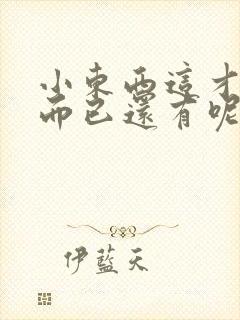 小東西這才
而已還有呢
伊藍天